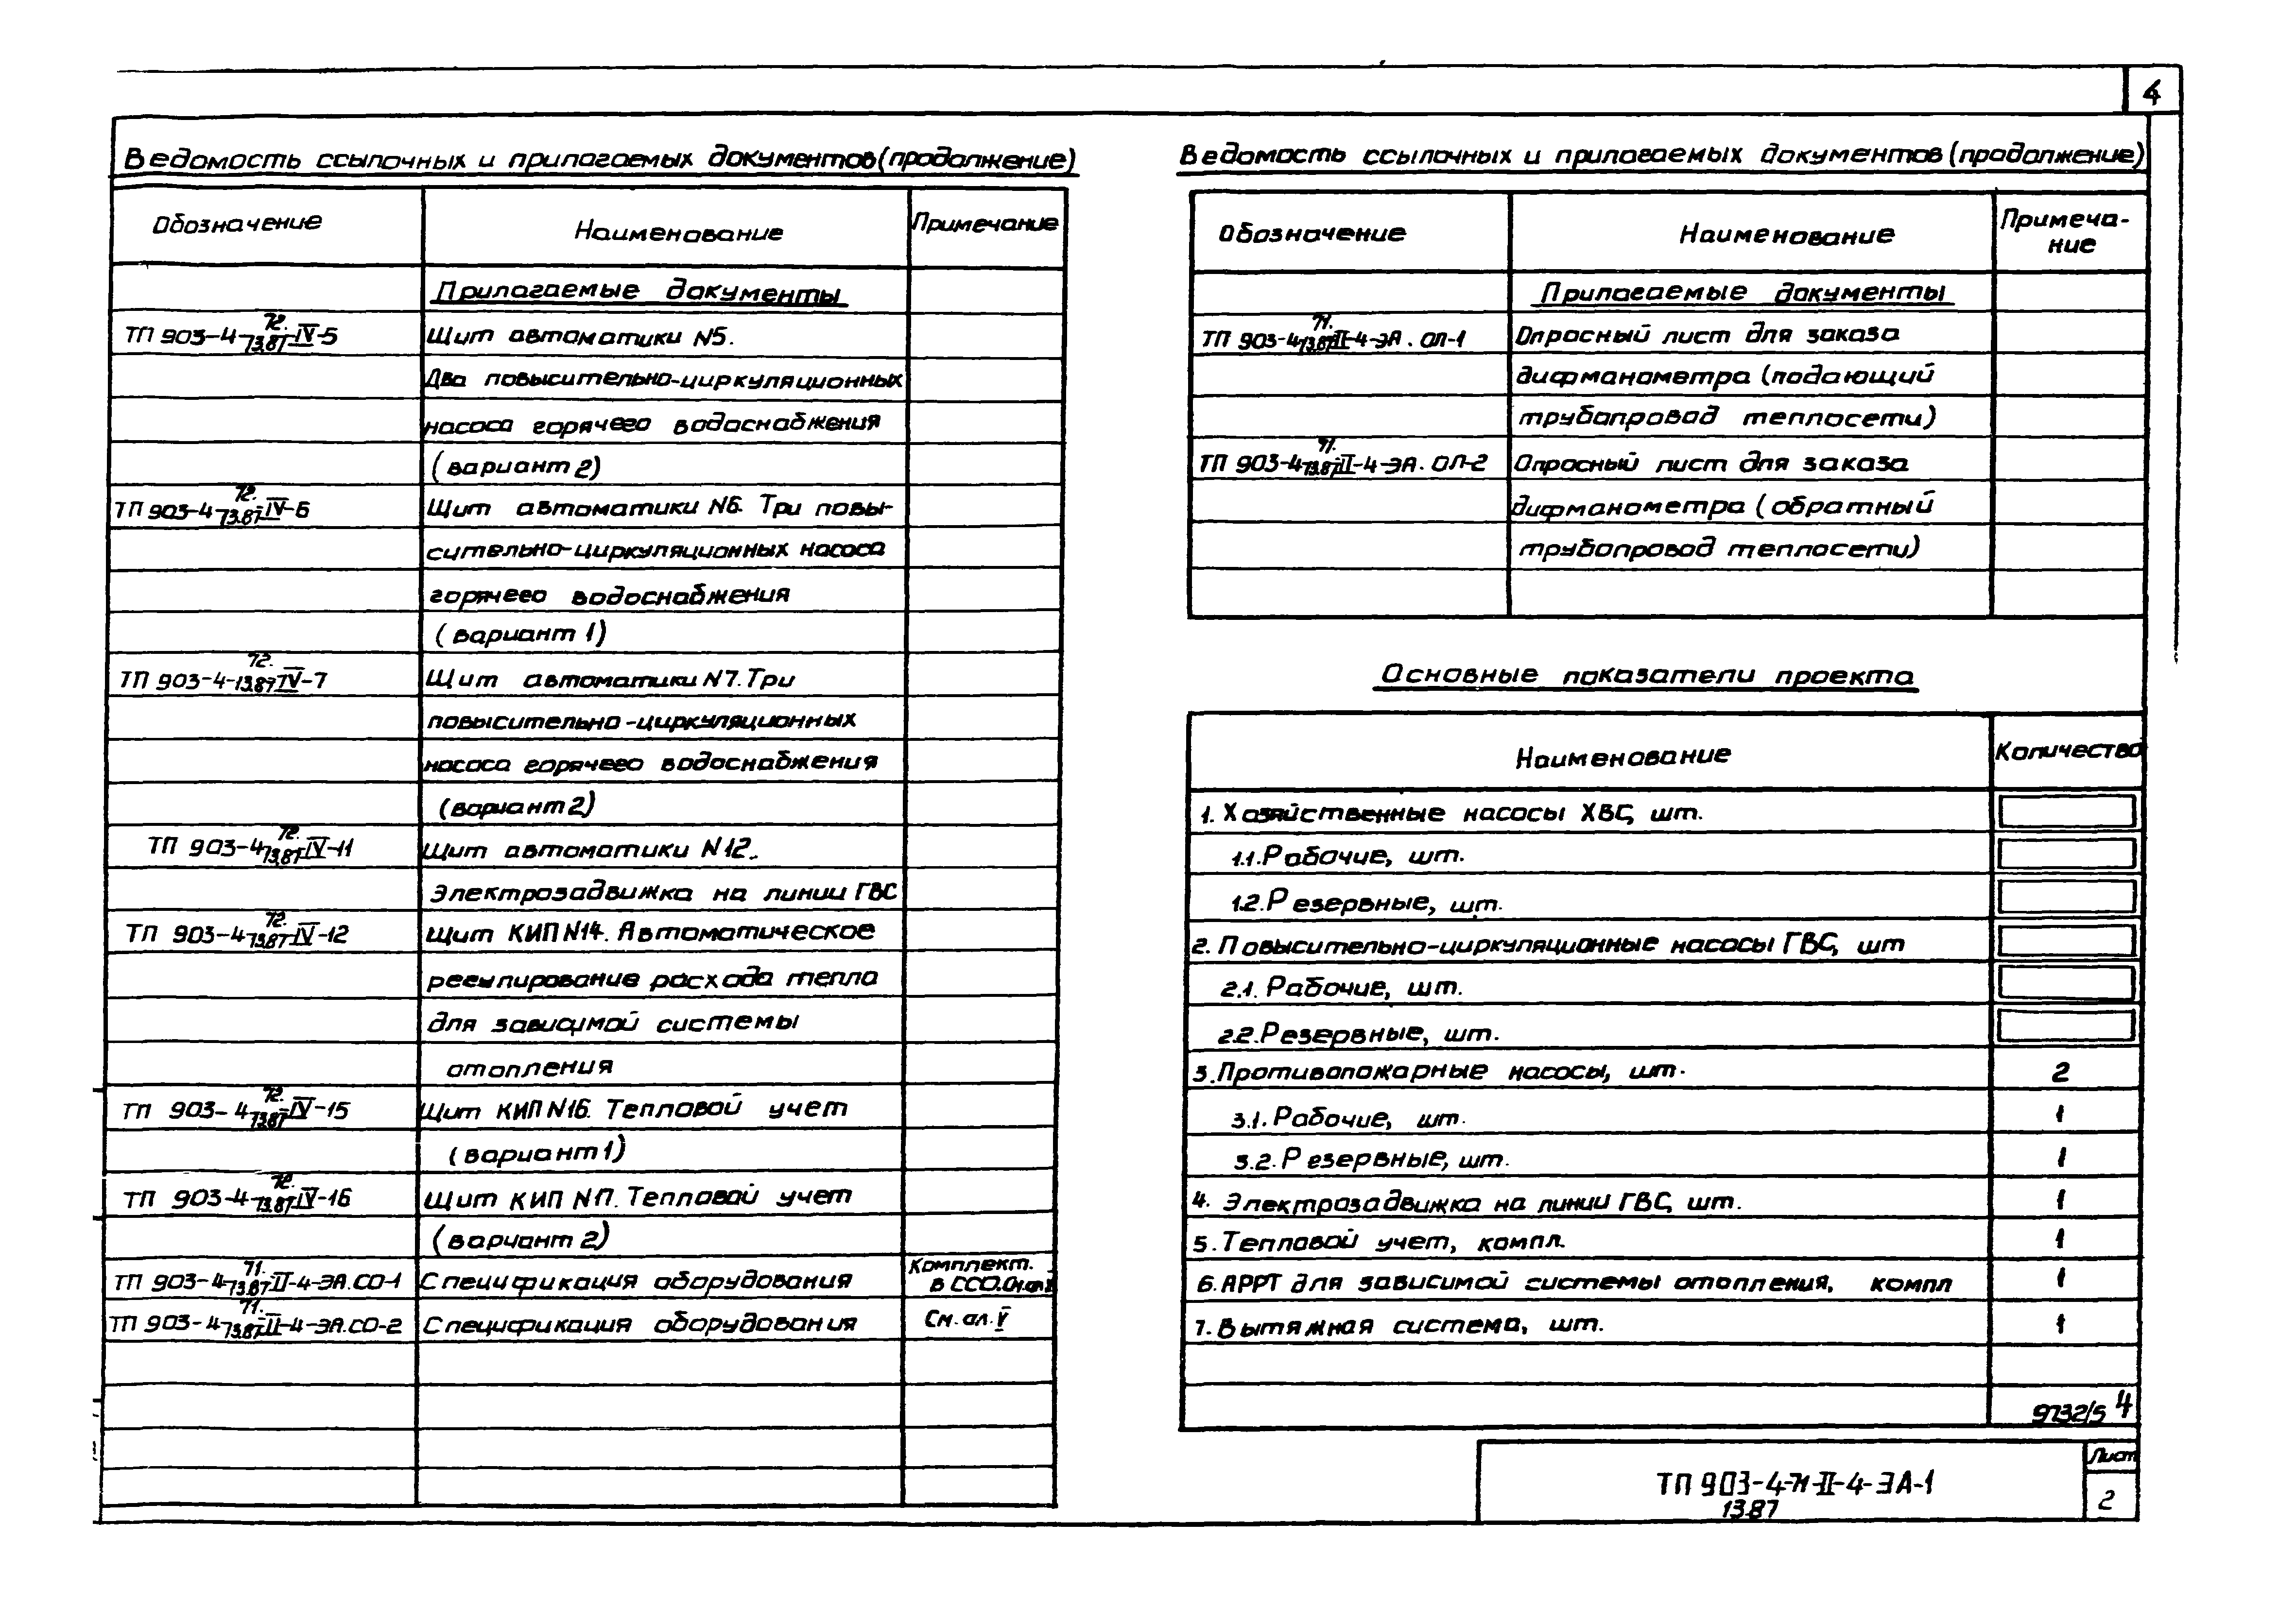 4
Ведомость ссылочных и прилагаемых документов (продолжение)
Обозначение Наименование Примечание
Прилагаемые документы
ТП 903-4-72.13.87-IV-5 Щит автоматики N5.
Два повысительно-циркуляционных
насоса горячего водоснабжения
(вариант 2)
ТП 903-4-72.13.87-IV-6 Щит автоматики N6. Три повы-
сительно-циркуляционных насоса
горячего водоснабжения
(вариант 1)
ТП 903-4-72.13.87-IV-7 Щит автоматики N7. Три
повысительно-циркуляционных
насоса горячего водоснабжения
(вариант 2)
ТП 903-4-72.13.87-IV-11 Щит автоматики N12.
Электрозадвижка на линии ГВС
ТП 903-4-72.13.87-IV-12 Щит КИП N14. Автоматическое
регулирование расхода тепла
для зависимой системы
отопления
ТП 903-4-72.13.87-IV-15 Щит КИП N16. Тепловой учет
(вариант 1)
ТП 903-4-72.13.87-IV-16 Щит КИП N17. Тепловой учет
(вариант 2)
Комплект.
ТП 903-4-71.13.87-II-4-ЭА.СО-1 Спецификация оборудования в ССО.
ТП 903-4-71.13.87-II-4-ЭА.СО-2 Спецификация оборудования См. ал. V
Ведомость ссылочных и прилагаемых документов (продолжение)
Обозначение Наименование Примеча-
ние
Прилагаемые документы
ТП 903-4-71.13.87-II-4-ЭА.ОЛ-1 Опросный лист для заказа
дифманометра (подающий
трубопровод теплосети)
ТП 903-4-71.13.87-II-4-ЭА.ОЛ-2 Опросный лист для заказа
дифманометра (обратный
трубопровод теплосети)
Основные показатели проекта
Наименование Количество
1. Хозяйственные насосы ХВС, шт.
1.1. Рабочие, шт.
1.2. Резервные, шт.
2. Повысительно-циркуляционные насосы ГВС, шт
2.1. Рабочие, шт.
2.2. Резервные, шт.
3. Противопожарные насосы, шт. 2
3.1. Рабочие, шт. 1
3.2. Резервные, шт. 1
4. Электрозадвижка на линии ГВС, шт. 1
5. Тепловой учет, компл. 1
6. АРРТ для зависимой системы отопления, компл 1
7. Вытяжная система, шт. 1
9732/5 4
Лист
ТП 903-4-71-II-4-ЭА-1
13.87
2